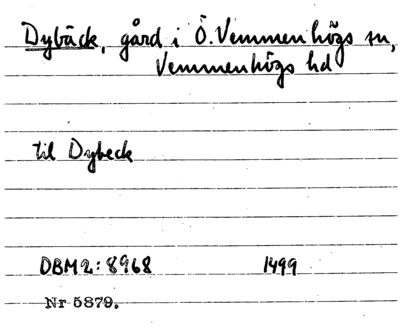 Dybäck, gård i Ö. Vemmenhögs sn,
Vemmenhögs hd
til Dybeck
DBM2: 8968 1499
Nr 5879.